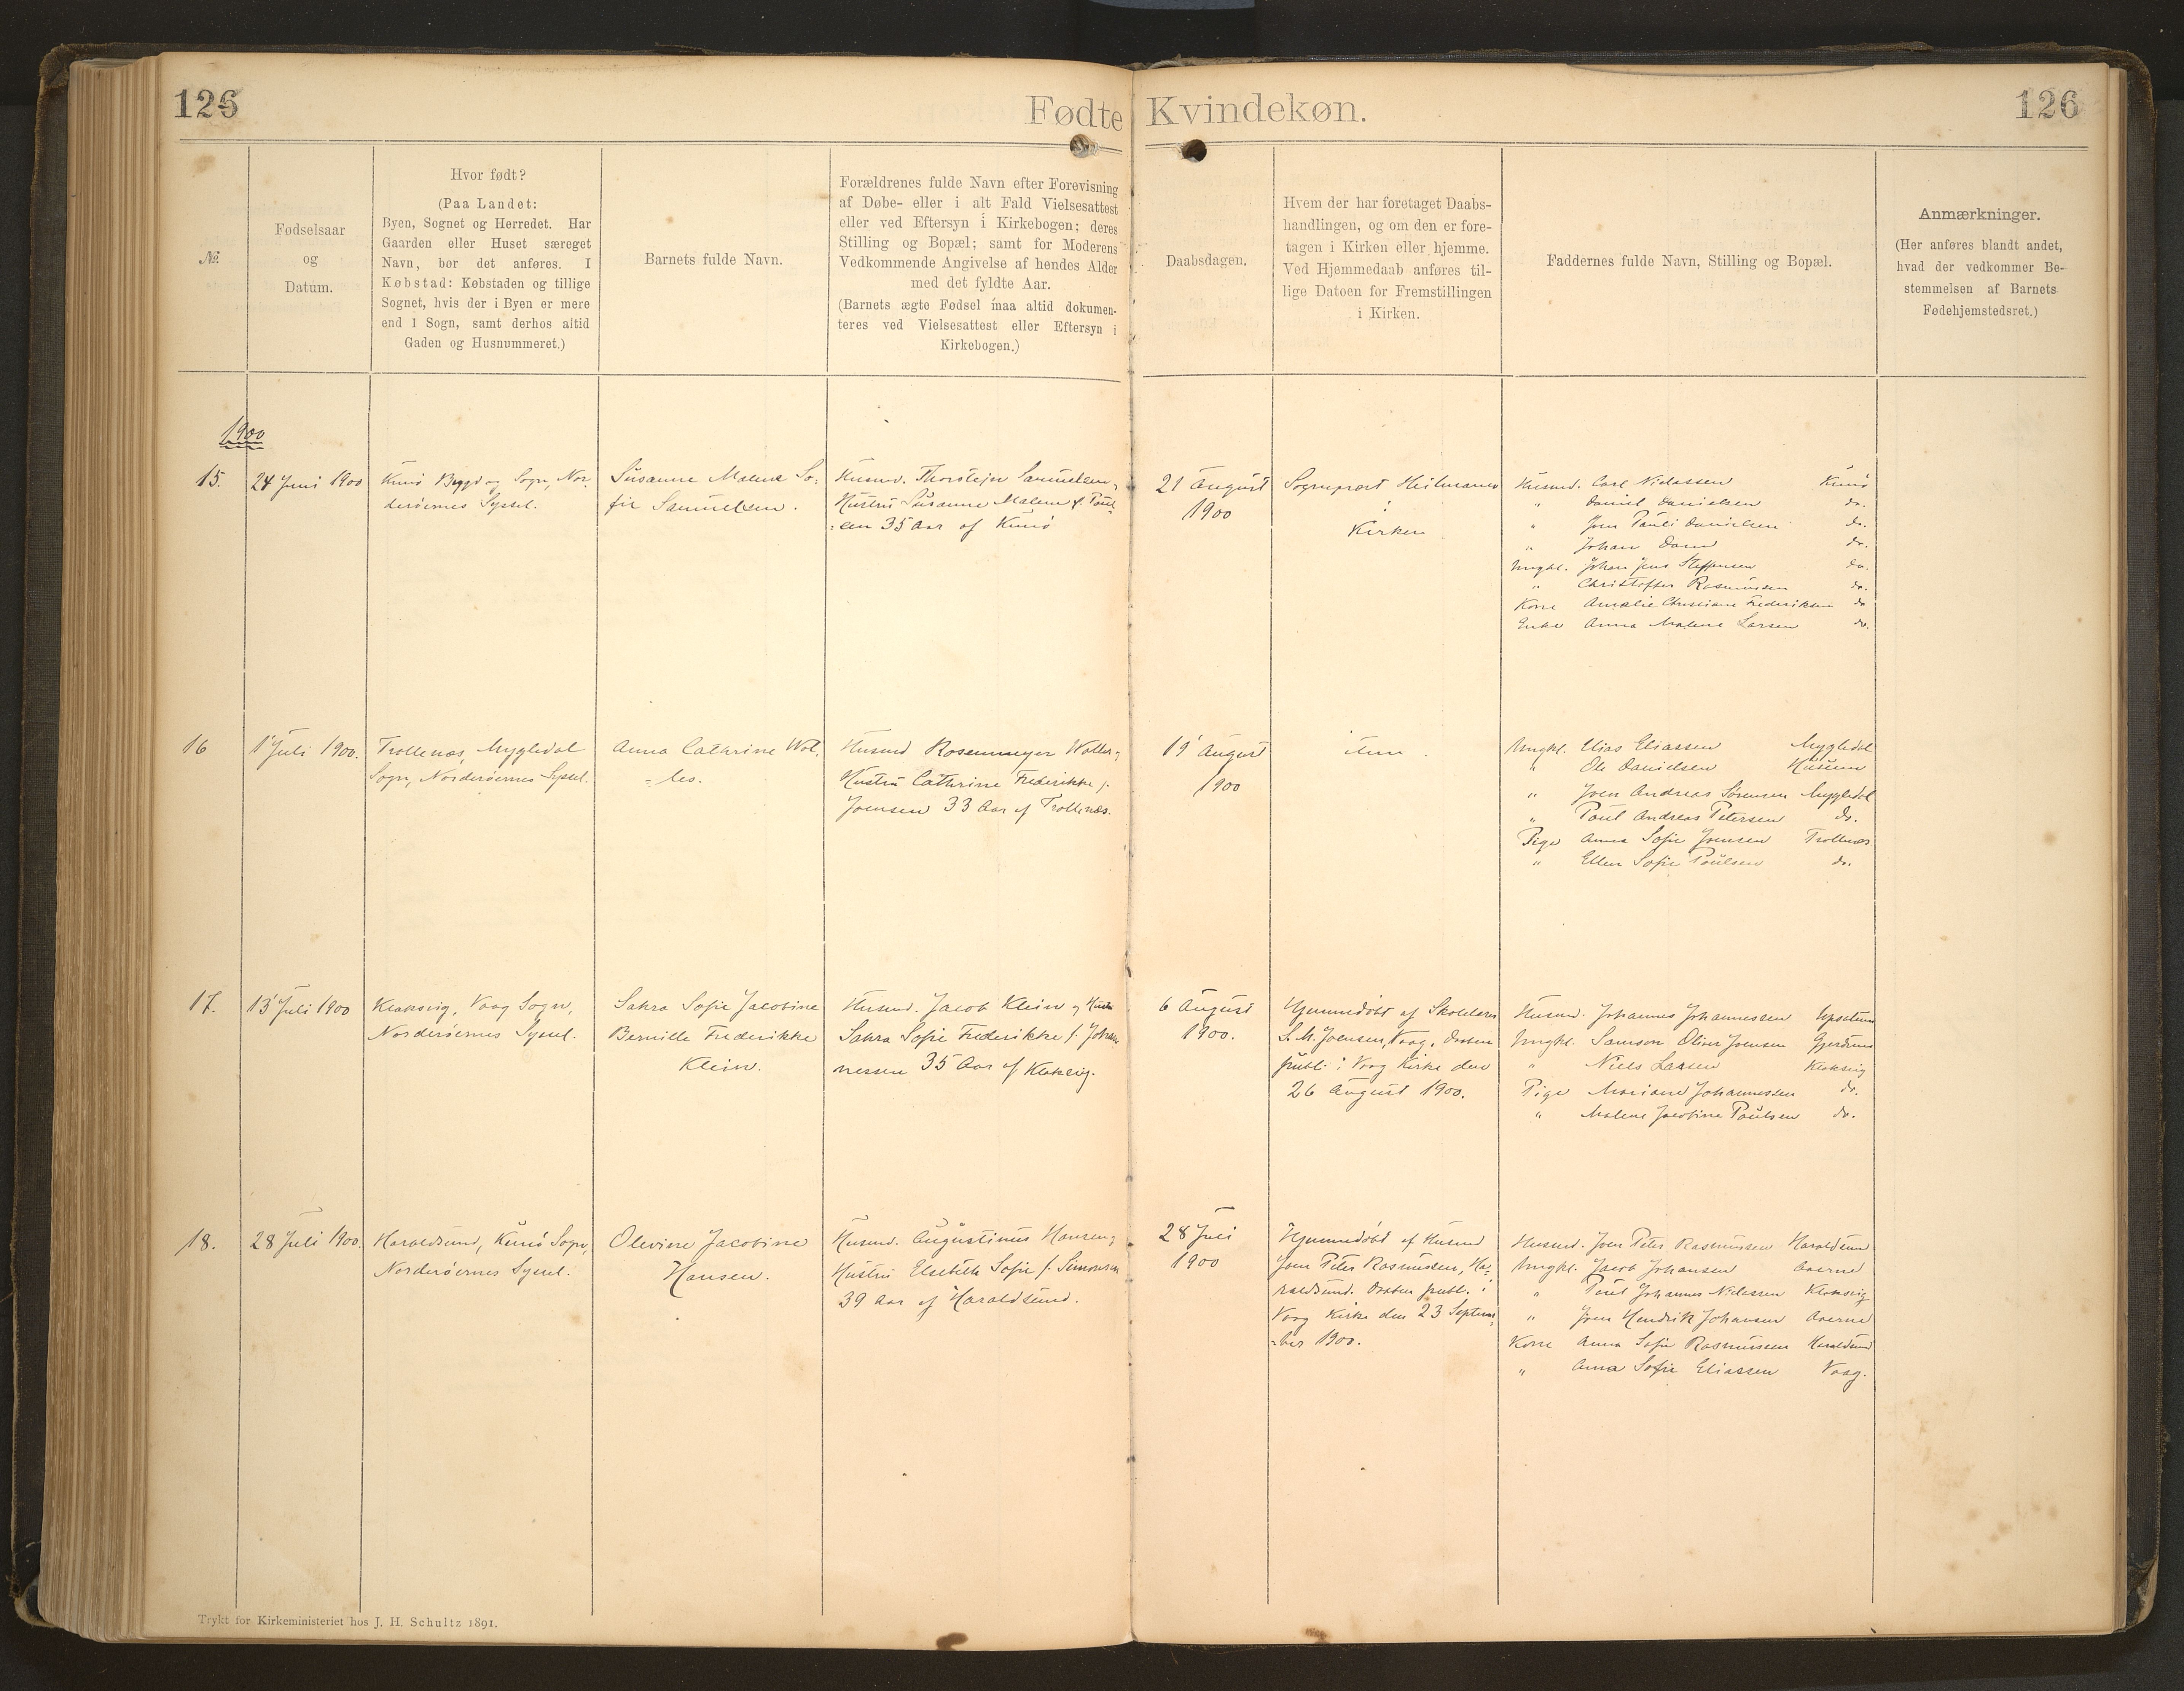 126
Fødte Kvindekøn.
126
№.
Fødselsaar
og
Datum.
Hvor født?
(Paa Landet:
Byen, Sognet og Herredet. Har
Gaarden eller Huset særeget
Navn, bør det anføres. I
Købstad: Købstaden og tillige
Sognet, hvis der i Byen er mere
end 1 Sogn, samt derhos altid
Gaden og Husnummeret.)
Barnets fulde Navn.
Forældrenes fulde Navn efter Forevisning
af Døbe- eller i alt Fald Vielsesattest
eller ved Eftersyn i Kirkebogen; deres
Stilling og Bopæl; samt for Moderens
Vedkommende Angivelse af hendes Alder
med det fyldte Aar.
(Barnets ægte Fødsel maa altid dokumen-
teres ved Vielsesattest eller Eftersyn i
Kirkebogen.)
Daabsdagen.
Hvem der har foretaget Daabs-
handlingen, og om den er fore-
tagen i Kirken eller hjemme.
Ved Hjemmedaab anføres til-
lige Datoen for Fremstillingen
i Kirken.
Faddernes fulde Navn, Stilling og Bopæl.
Anmærkninger.
(Her anføres blandt andet,
hvad der vedkommer Be-
stemmelsen af Barnets
Fødehjemstedsret.)
1900
15.
24 Juni 1900
Kunø Bygd og Sogn, Nor-
derøernes Syssel.
Susanne Malene So-
fie Samuelsen.
Husmd. Thorstejn Samuelsen,
Hustru Susanne Malene f. Poul-
sen 35 Aar af Kunø
21 August
1900
Sognepræst Heilmann
i
Kirken
Husmd. Carl Niclassen Kunø
" Daniel Danielsen do.
" Joen Pauli Danielsen do.
" Johan Dam do.
Ungkl. Johan Jens Steffensen do.
" Christoffer Rasmussen do.
Kone Amalie Christiane Frederiksen do
Enke Anna Malene Larsen do.
16
1 Juli 1900.
Trollenæs, Mygledal
Sogn, Norderøernes Syssel.
Anna Cathrine Wol-
les.
Husmd Rosenmeyer Wolles,
Hustru Cathrine Frederikke f.
Joensen 33 Aar af Trollenæs.
19 August
1900
item
Ungkl. Elias Eliassen Mygledal
" Ole Danielsen Husum
" Joen Andreas Sørensen Mygledal
" Poul Andreas Petersen do.
Pige Anna Sofie Joensen Trollenæs
" Ellen Sofie Poulsen do.
17.
13 Juli 1900
Klaksvig, Vaag Sogn,
Norderøernes Syssel.
Sakra Sofie Jacobine
Bernille Frederikke
Klein.
Husmd. Jacob Klein og Hustru
Sakra Sofie Frederikke f. Johan-
nessen 35 Aar af Klaksvig.
6 August
1900.
Hjemmedøbt af Skolelærer
S. M. Joensen, Vaag. Daaben
publ. i Vaag Kirke den
26 August 1900.
Husmd. Johannes Johannessen
Ungkl. Samson Oliver Joensen
" Niels Larsen Klaksvig
Pige Mariane Johannessen do.
" Malene Jacobine Poulsen do.
18.
28 Juli 1900.
Haraldsund, Kunø Sogn,
Norderøernes Syssel.
Olevine Jacobine
Hansen.
Husmd. Augustinus Hansen,
Hustru Elsebeth Sofie f. Simonsen
39 Aar af Haraldsund.
28 Juli
1900
Hjemmedøbt af Husmd
Joen Peter Rasmussen, Ha-
raldsund. Daaben publ. i
Vaag Kirke den 23 Septem-
ber 1900.
Husmd. Joen Peter Rasmussen Haraldsund
Ungkl. Jacob Johansen Aaerne
" Poul Johannes Niclassen Klaksvig
" Joen Hendrik Johansen Aaerne
Kone Anna Sofie Rasmussen Haraldsund
" Anna Sofie Eliassen Vaag.
Trykt for Kirkeministeriet hos J. H. Schultz 1891.